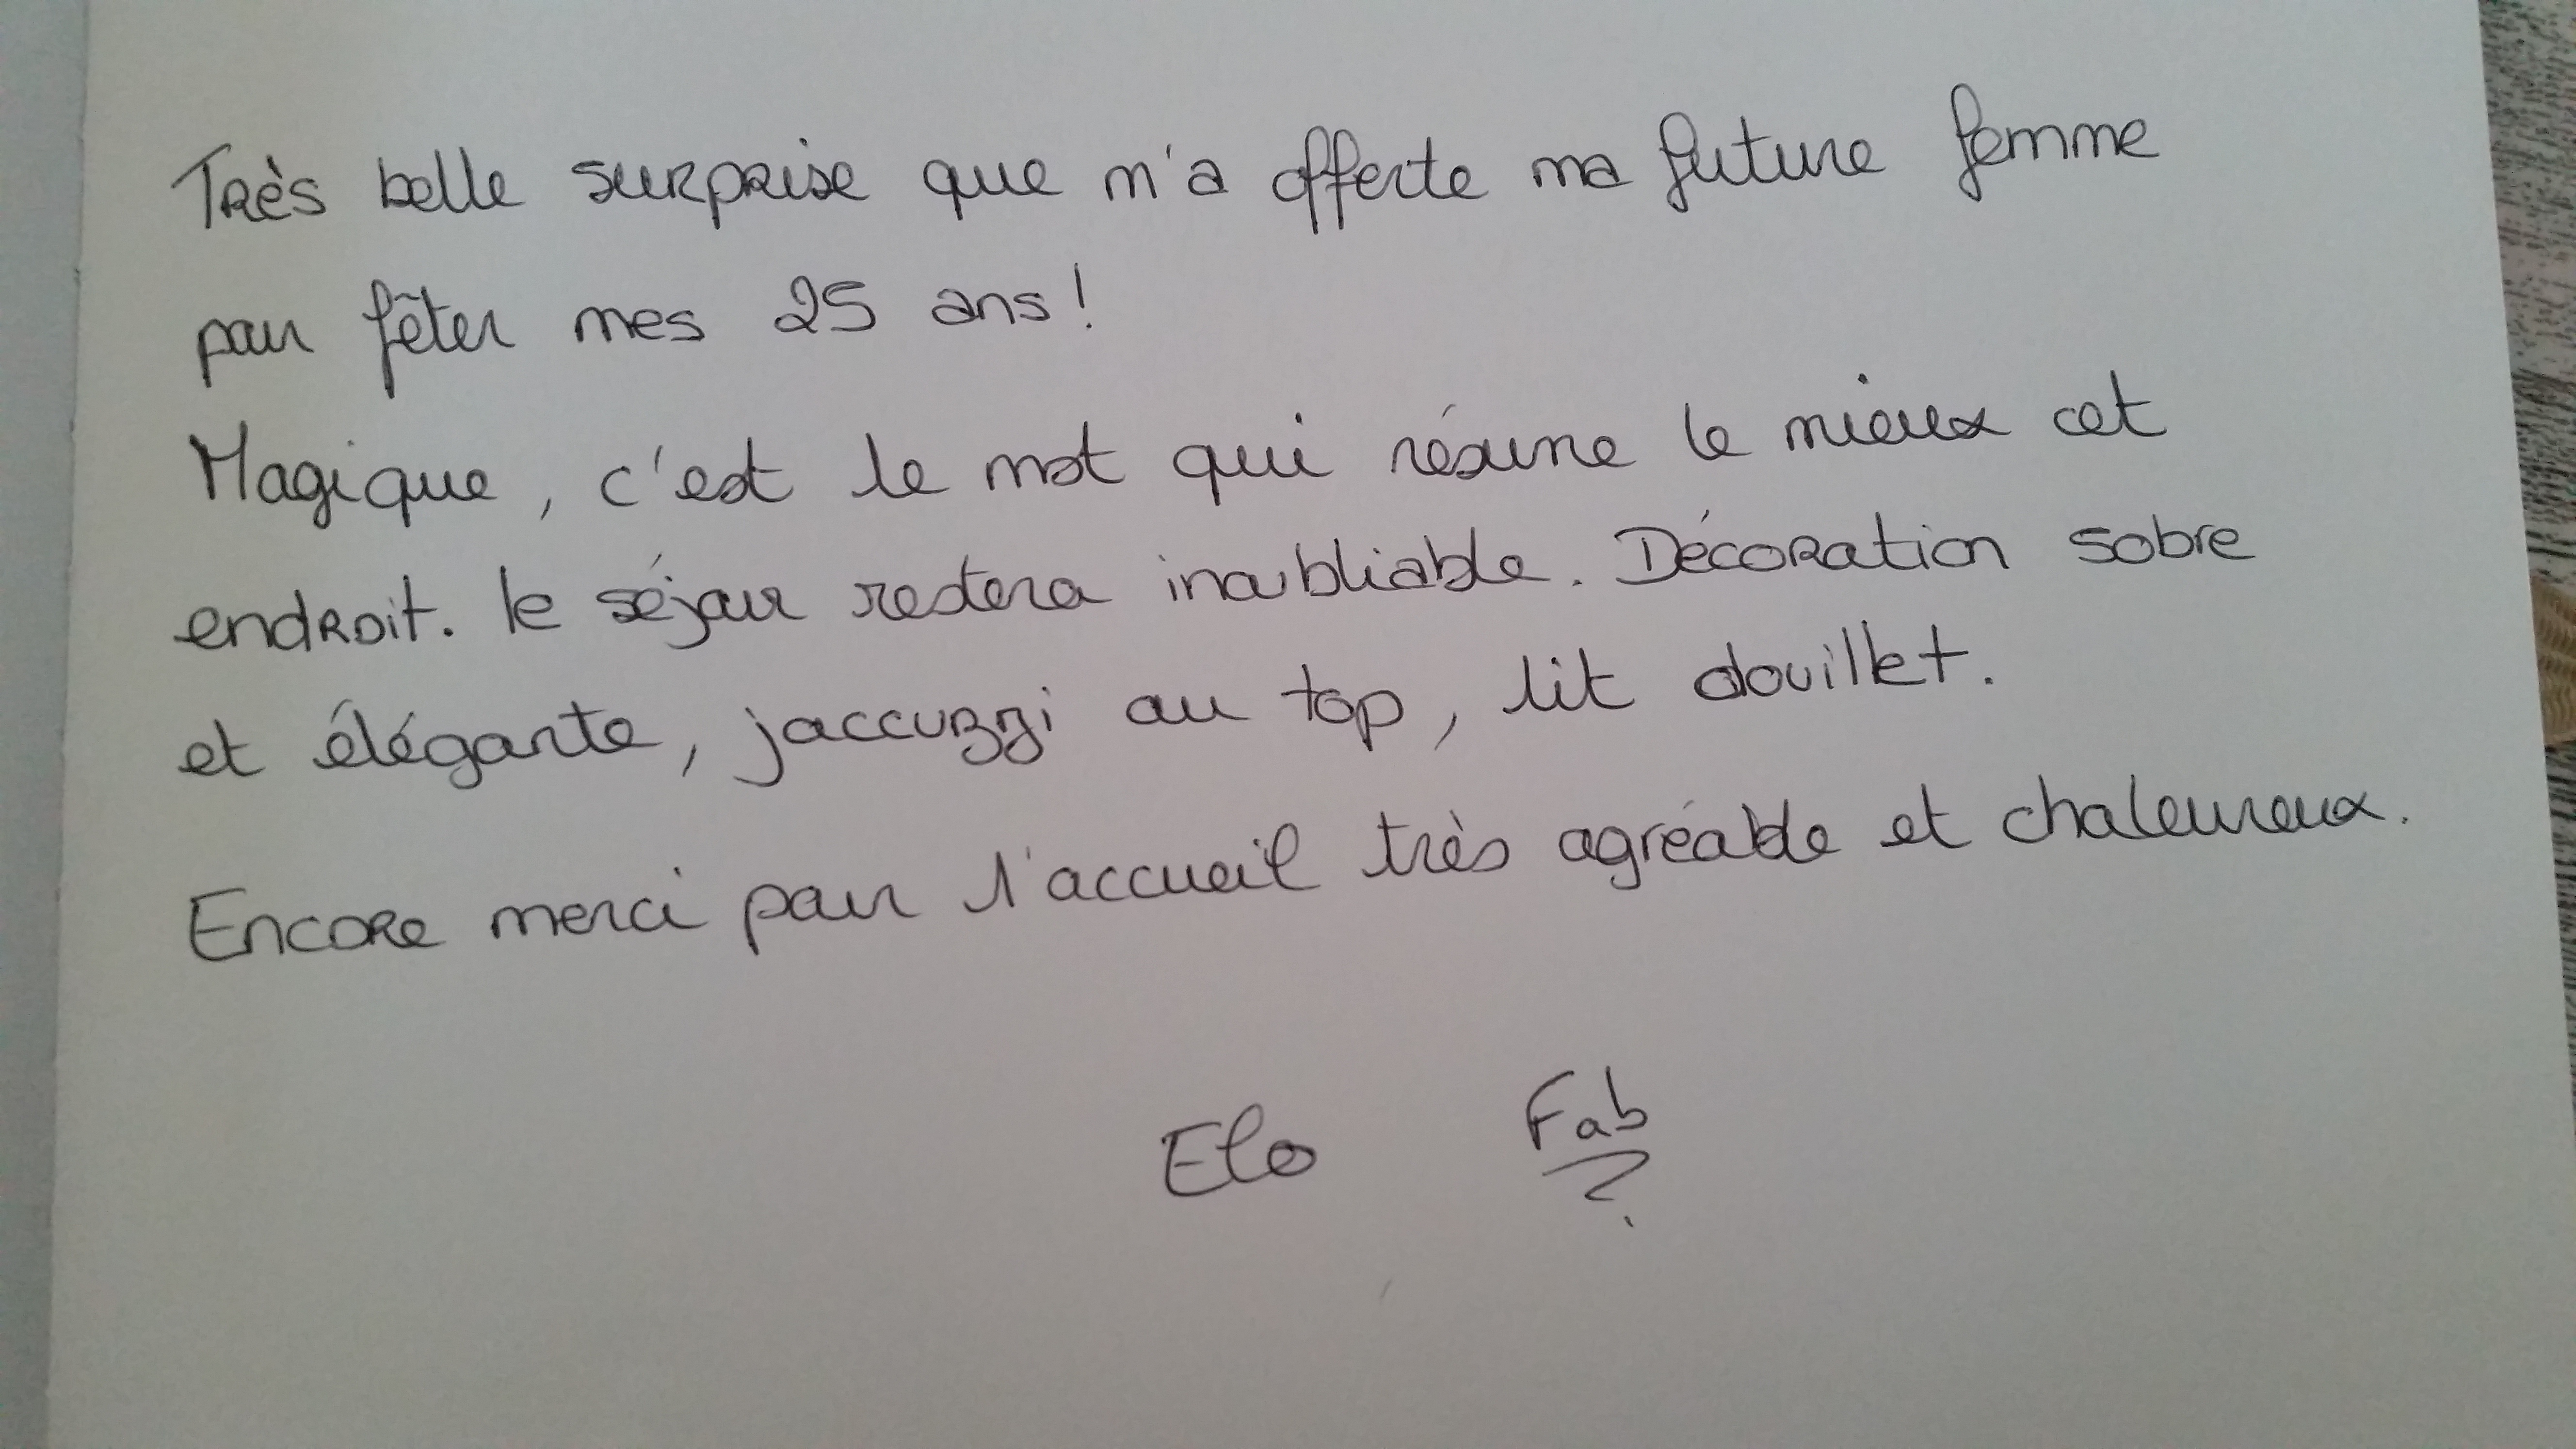 Très belle surprise que m'a offerte ma future femme
pour fêter mes 25 ans !
Magique, c'est le mot qui résume le mieux cet
endroit. le séjour restera inoubliable. Décoration sobre
et élégante, jaccuzzi au top, lit douillet.
Encore merci pour l'accueil très agréable et chaleureux.
Elo Fab